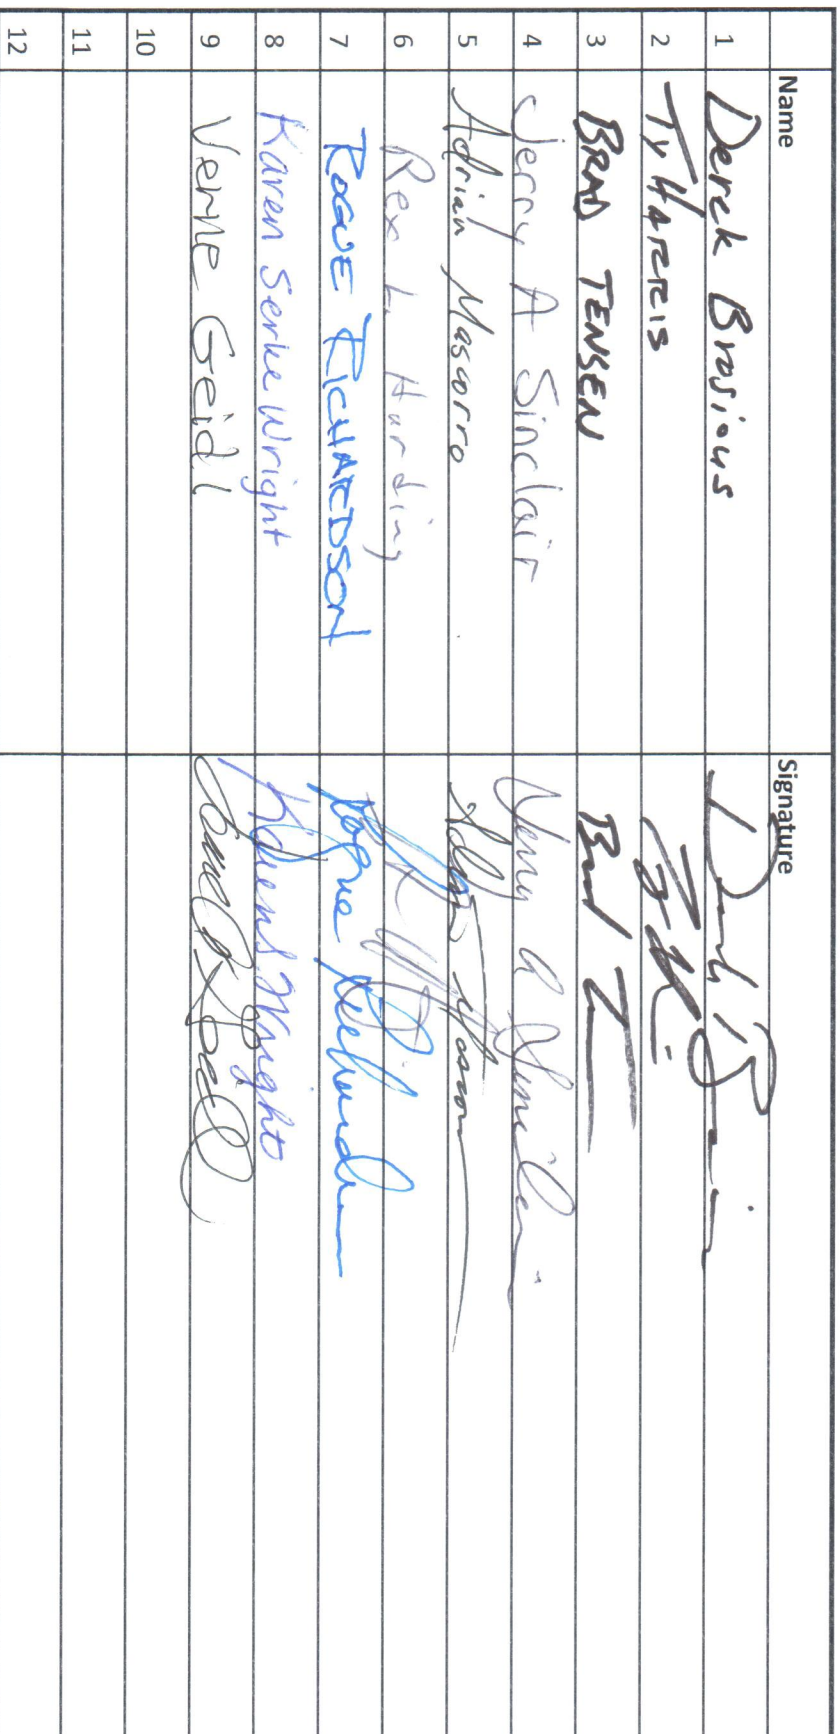 Name Signature
1 Derek Brosious
2 Ty HARRIS
3 BRAD TENSEN Brad
4 Jerry A Sinclair Jerry A Sinclair
5 Adrian Mascorro
6 Rex L Harding
7 ROGUE RICHARDSON Rogue Richardson
8 Karen Serke Wright Karen S Wright
9 Verne Geidl
10
11
12